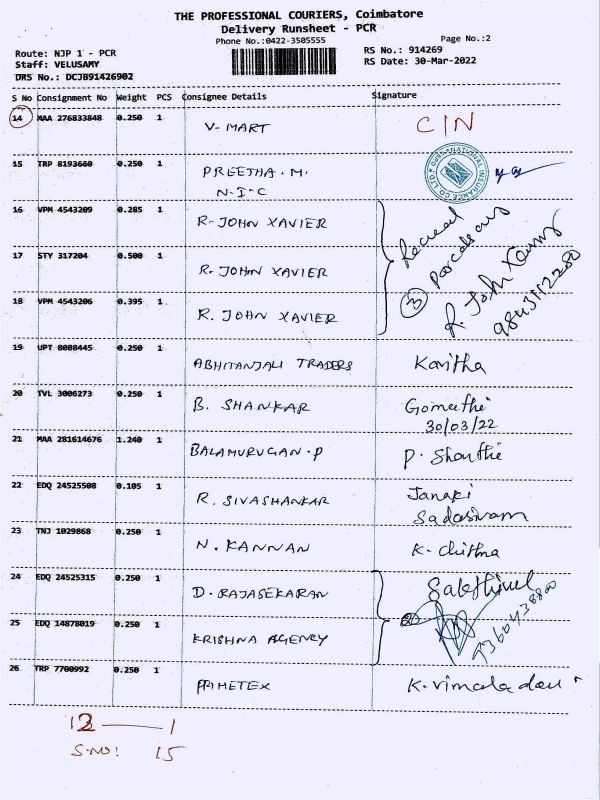 THE PROFESSIONAL COURIERS, Coimbatore
Delivery Runsheet - PCR
Phone No.:0422-3505555
Page No.:2
Route: NJP 1 - PCR
RS No.: 914269
Staff: VELUSAMY
RS Date: 30-Mar-2022
DRS No.: DCJB91426902
S No Consignment No Weight PCS Consignee Details Signature
14 MAA 276833848 0.250 1 V-MART C/N
15 TRP 8193660 0.250 1 PREETHA. M.
N-I-C
NATIONAL INSURANCE CO. LTD.
16 VPM 4543209 0.285 1 R-JOHN XAVIER
17 STY 317204 0.500 1 R. JOHN XAVIER
18 VPM 4543206 0.395 1 R. JOHN XAVIER
3
R. John
9843112280
19 UPT 0088445 0.250 1 ABHITANJALI TRADERS Kavitha
20 TVL 3006273 0.250 1 B. SHANKAR Gomathi
30/03/22
21 MAA 281614676 1.240 1 BALAMURUGAN.P P. Shanthi
22 EDQ 24525508 0.105 1 R. SIVASHANKAR Janaki
Sadasivam
23 TNJ 1029868 0.250 1 N. KANNAN K. Chithra
24 EDQ 24525315 0.250 1 D. RAJASEKARAN Sakthivel
25 EDQ 14878019 0.250 1 KRISHNA AGENCY
2
26 TRP 7700992 0.250 1 PRIMETEX K. vimala devi
12 — 1
S.NO: 15